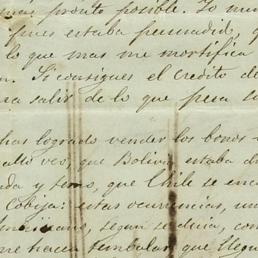 mas pronto posible. Yo
pues estaba persuadid
lo que mas me mortifica
Si consigues el credito de
salir de lo que pesa
has logrado vender los bonos
veo, que Bolivia estaba
y temo, que Chile se
Cobija: estas ocurrencias,
segun se decia,
me hacen temblar que llegu